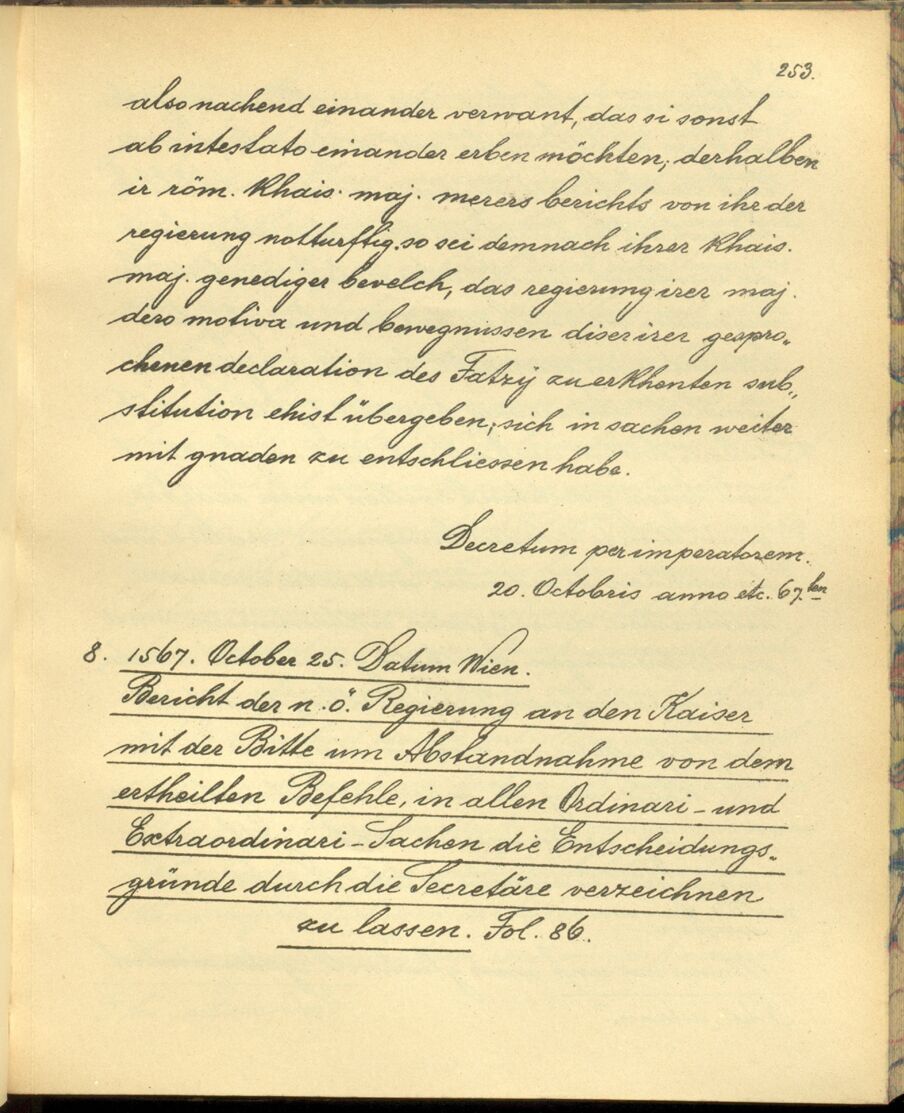 253.
also nachend einander verwant, das si sonst
ab intestato einander erben möchten; derhalben
ir röm. Khais. maj. merers berichts von ihr der
regierung notturftig. so sei demnach ihrer Khais.
maj. genediger bevelch, das regierung irer maj.
dero motiva und bewegnussen diser irer gespro„
chenen declaration des Fatzÿ zu erkhenten sub„
stitution ehist übergeben, sich in sachen weiter
mit gnaden zu entschliessen habe.
Decretum per imperatorem.
20. Octobris anno etc. 67.ten
8. 1567. October 25. Datum Wien.
Bericht der n. ö. Regierung an den Kaiser
mit der Bitte um Abstandnahme von dem
ertheilten Befehle, in allen Ordinari- und
Extraordinari-Sachen die Entscheidungs„
gründe durch die Secretäre verzeichnen
zu lassen. Fol. 86.